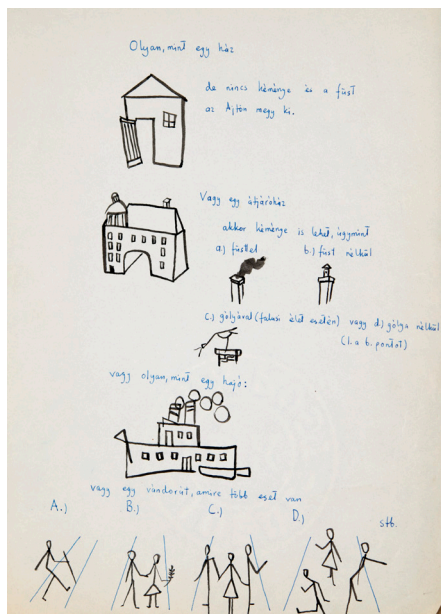 Olyan, mint egy ház
de nincs kéménye és a füst
az Ajtón megy ki.
Vagy egy átjáróház
akkor kéménye is lehet, úgymint
a.) füsttel b.) füst nélkül
c.) gólyával (falusi élet esetén) vagy d.) gólya nélkül
(l. a b. pontot)
vagy olyan, mint egy hajó:
vagy egy vándorút, amire több eset van
A.) B.) C.) D.) stb.